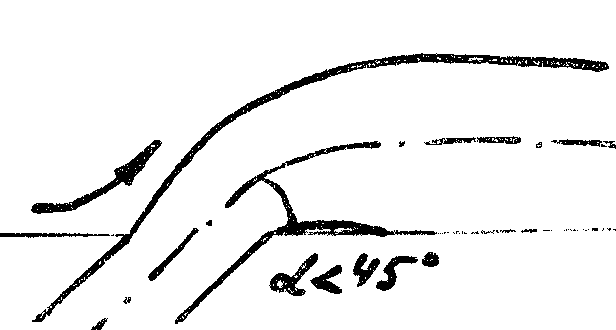 α<45°